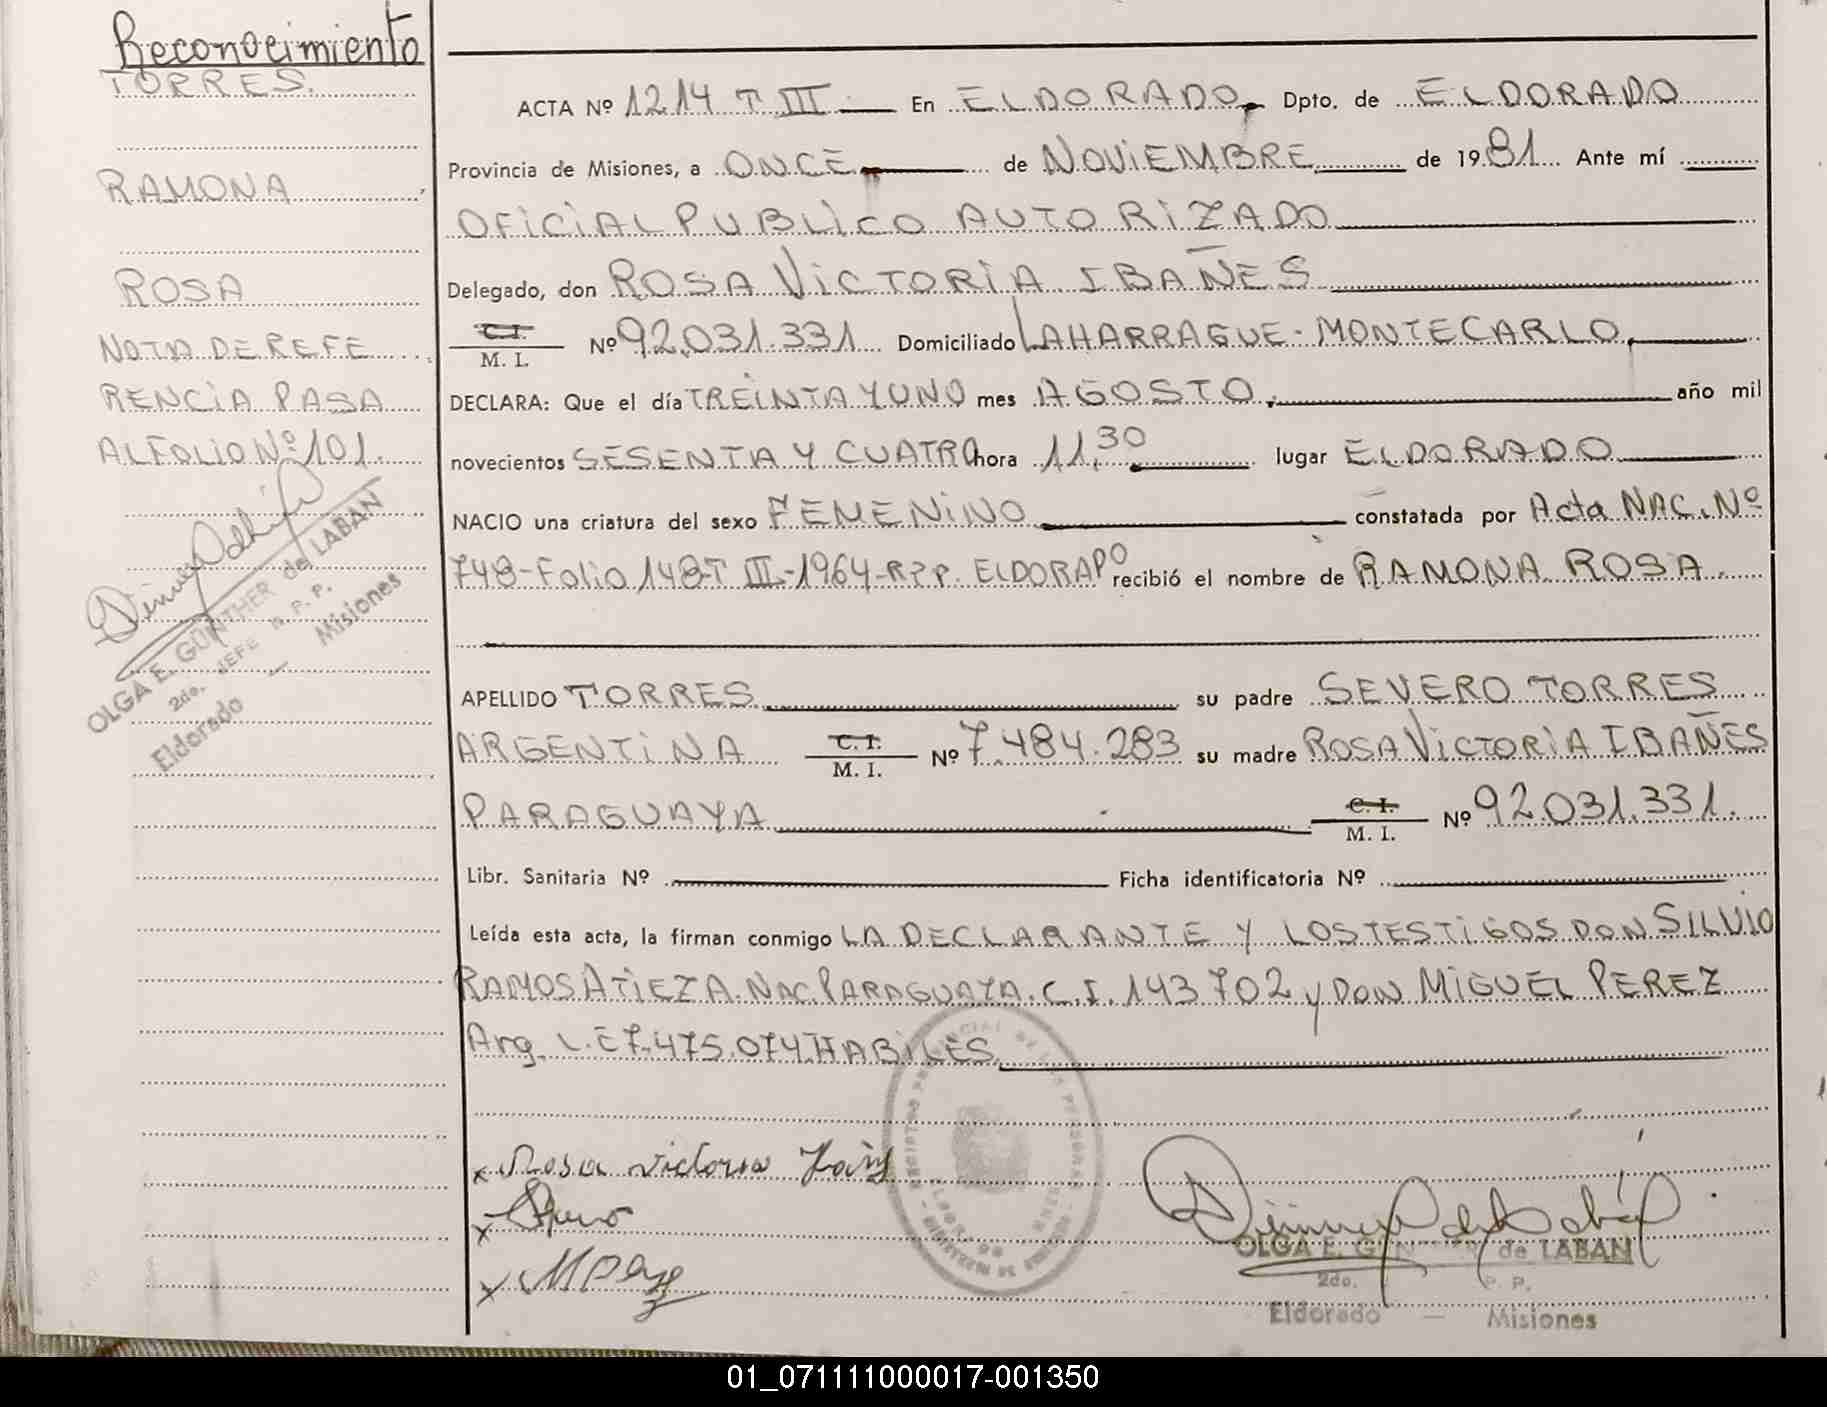 Reconocimiento
TORRES.
RAMONA
ROSA
NOTA DE REFE
RENCIA PASA
AL FOLIO Nº 101.
OLGA E. GÜNTHER de LABAN
2do. JEFE R. P. P.
Eldorado — Misiones
ACTA Nº 1214 T III En ELDORADO, Dpto. de ELDORADO
Provincia de Misiones, a ONCE de NOVIEMBRE de 1981 Ante mí
OFICIAL PUBLICO AUTORIZADO
Delegado, don ROSA VICTORIA IBAÑES
C.I. M. I. Nº 92.031.331 Domiciliado LAHARRAGUE - MONTECARLO,
DECLARA: Que el día TREINTA Y UNO mes AGOSTO, año mil
novecientos SESENTA Y CUATRO hora 11,30 lugar ELDORADO
NACIO una criatura del sexo FEMENINO constatada por Acta NAC. Nº
748-Folio 148-T III-1964-R.P.P. ELDORADO recibió el nombre de RAMONA ROSA.
APELLIDO TORRES su padre SEVERO TORRES
ARGENTINA C.I. M. I. Nº 7.484.283 su madre ROSA VICTORIA IBAÑES
PARAGUAYA C.I. M. I. Nº 92.031.331.
Libr. Sanitaria Nº Ficha identificatoria Nº
Leída esta acta, la firman conmigo LA DECLARANTE Y LOS TESTIGOS DON SILVIO
RAMOS ATIEZA NAC. PARAGUAYA. C.I. 143702 y DON MIGUEL PEREZ
Arg. L.E 7.475.074 HABILES
x Rosa Victoria
x
x M Perez
OLGA E. GÜNTHER de LABAN
2do. P. P.
Eldorado — Misiones
01_071111000017-001350